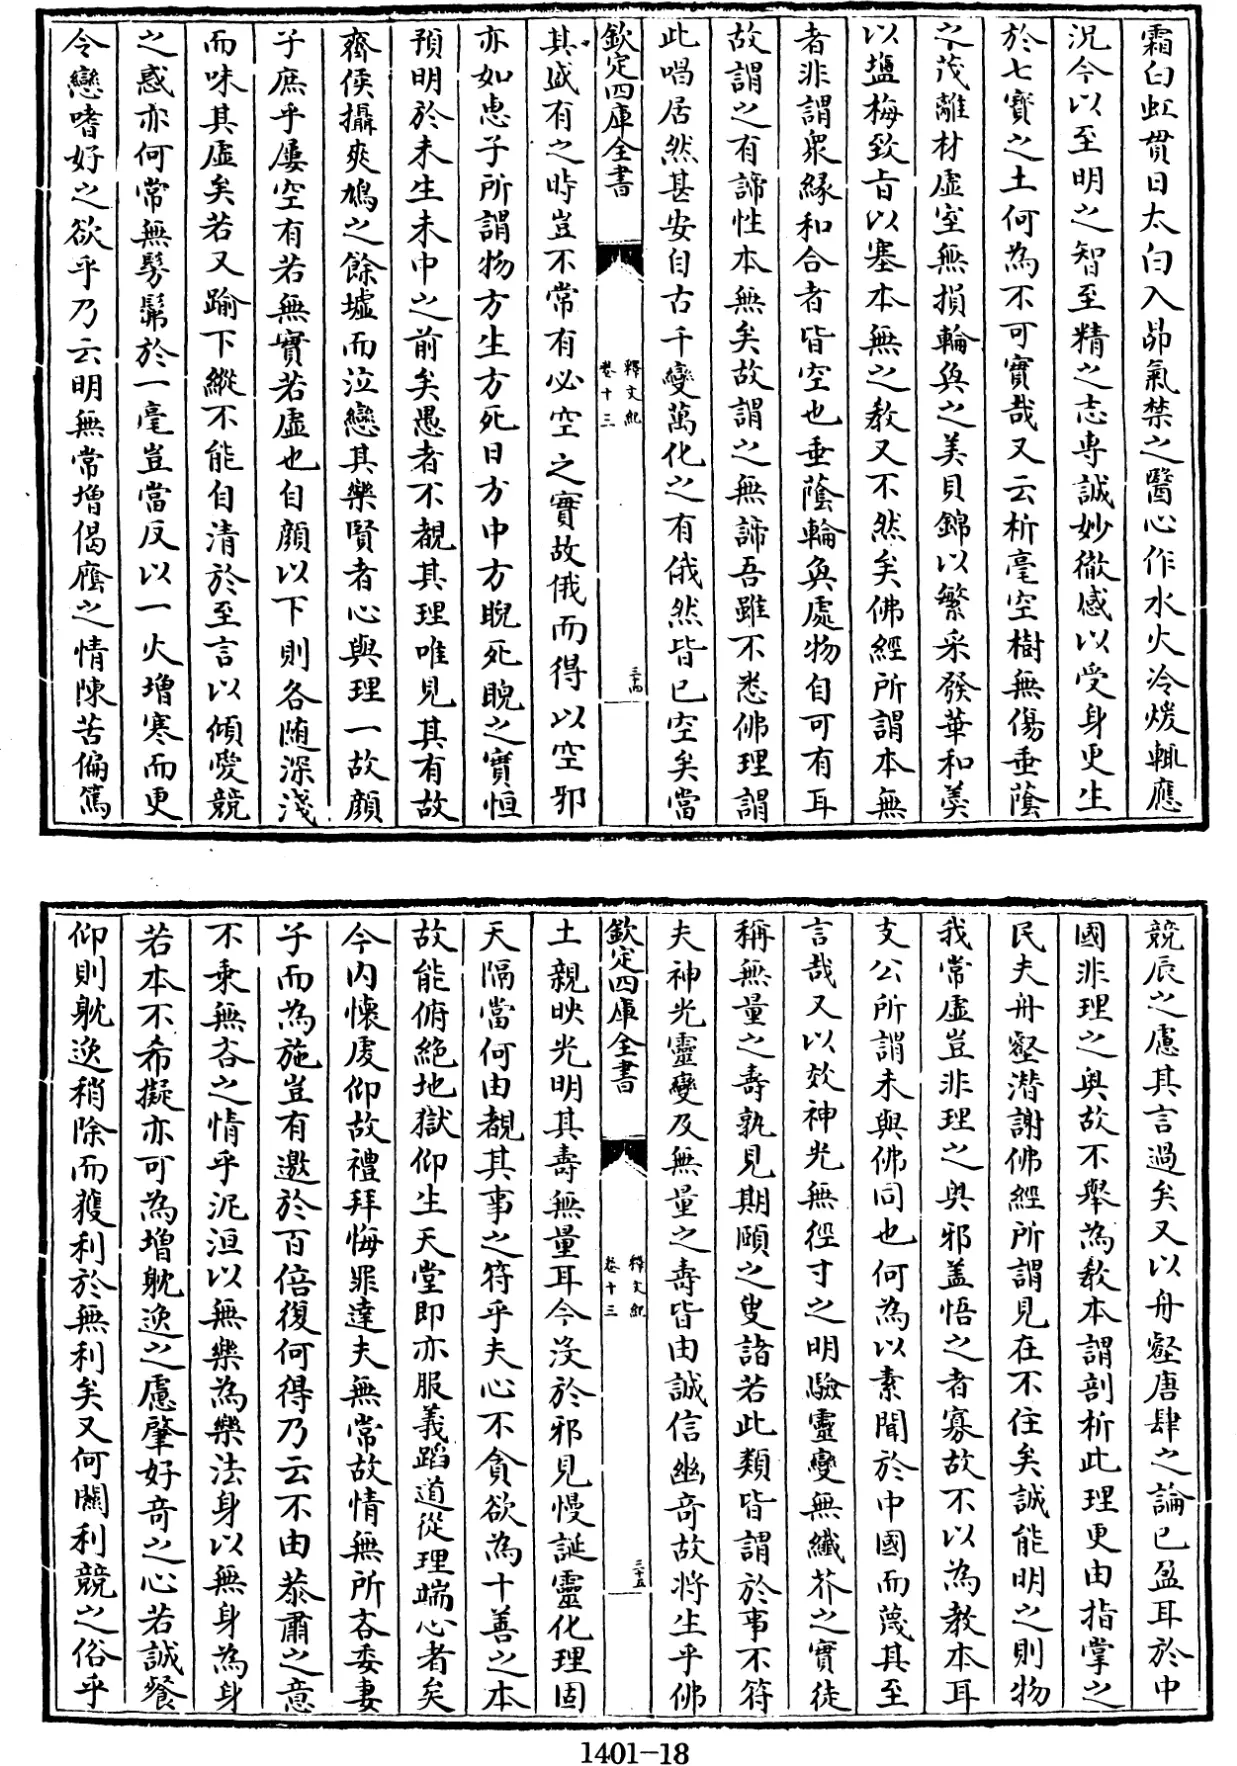 霜白虹貫日太白入昴氣禁之醫心作水火冷煖輒應
況今以至明之智至精之志専誠妙徹感以受身更生
於七寳之土何為不可實哉又云析毫空樹無傷垂蔭
之茂離材虛室無損輪奐之美貝錦以繁采發華和羮
以塩梅致㫖以塞本無之教又不然矣佛經所謂本無
者非謂衆縁和合者皆空也垂蔭輪奐處物自可有耳
故謂之有諦性本無矣故謂之無諦吾雖不悉佛理謂
此唱居然甚安自古千變萬化之有俄然皆已空矣當
欽定四庫全書
釋文紀
卷十三
三十四
其盛有之時豈不常有必空之實故俄而得以空邪
亦如恵子所謂物方生方死日方中方睨死睨之實恒
預明於未生未中之前矣愚者不覩其理唯見其有故
齊侯攝爽鳩之餘墟而泣戀其樂賢者心與理一故顔
子庶乎屢空有若無實若虛也自顔以下則各随深淺
而味其虛矣若又踰下縱不能自清於至言以傾愛競
之惑亦何常無髣髴於一毫豈當反以一火増寒而更
令戀嗜好之欲乎乃云明無常増偈廕之情陳苦偏篤
競辰之慮其言過矣又以舟壑唐肆之論已盈耳於中
國非理之奥故不舉為教本謂剖析此理更由指掌之
民夫舟壑潜謝佛經所謂見在不住矣誠能明之則物
我常虛豈非理之奥邪盖悟之者寡故不以為教本耳
支公所謂未與佛同也何為以素聞於中國而蔑其至
言哉又以效神光無徑寸之明驗靈變無纖芥之實徒
稱無量之壽孰見期頤之叟諸若此類皆謂於事不符
夫神光靈變及無量之壽皆由誠信幽竒故将生乎佛
欽定四庫全書
釋文紀
卷十三
三十五
土親映光明其壽無量耳今沒於邪見慢誕靈化理固
天隔當何由覩其事之符乎夫心不貪欲為十善之本
故能俯絶地獄仰生天堂即亦服義蹈道從理端心者矣
今内懐䖍仰故禮拜悔罪達夫無常故情無所吝委妻
子而為施豈有邀於百倍復何得乃云不由恭肅之意
不乗無吝之情乎泥洹以無樂為樂法身以無身為身
若本不希擬亦可為増躭逸之慮肇好竒之心若誠餐
仰則躭逸稍除而獲利於無利矣又何關利競之俗乎
1401-18